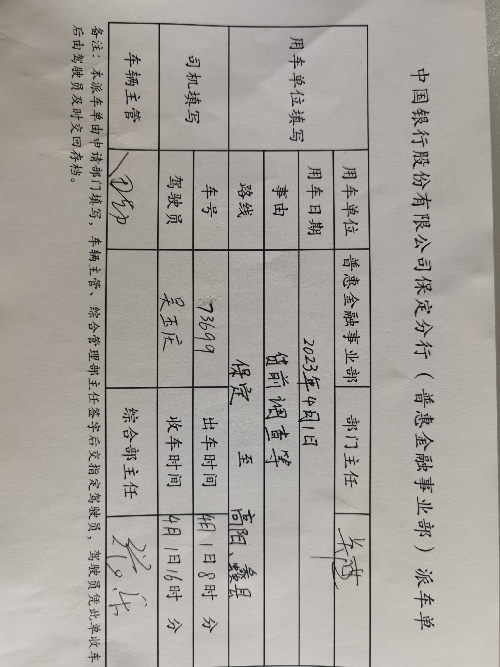 中国银行股份有限公司保定分行（普惠金融事业部）派车单
用车单位填写 用车单位 普惠金融事业部 部门主任
用车日期 2023年4月1日
事由 贷前调查等
路线 保定 至 高阳、蠡县
司机填写 车号 73699 出车时间 4月1日8时 分
驾驶员 收车时间 4月1日16时 分
车辆主管 综合部主任
备注：本派车单由申请部门填写，车辆主管、综合管理部主任签字后交指定驾驶员，驾驶员凭此单收车
后由驾驶员及时交回存档。